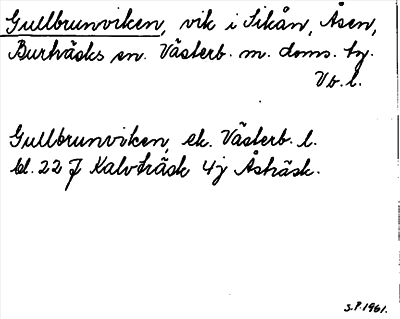 Gullbrunviken, vik i Sikån, Åsen,
Burträsks sn. Västerb. m. doms. tg.
Vb. l.
Gullbrunviken, ek. Västerb. l.
bl. 22 J Kalvträsk 4j Åsträsk.
S.P. 1961.